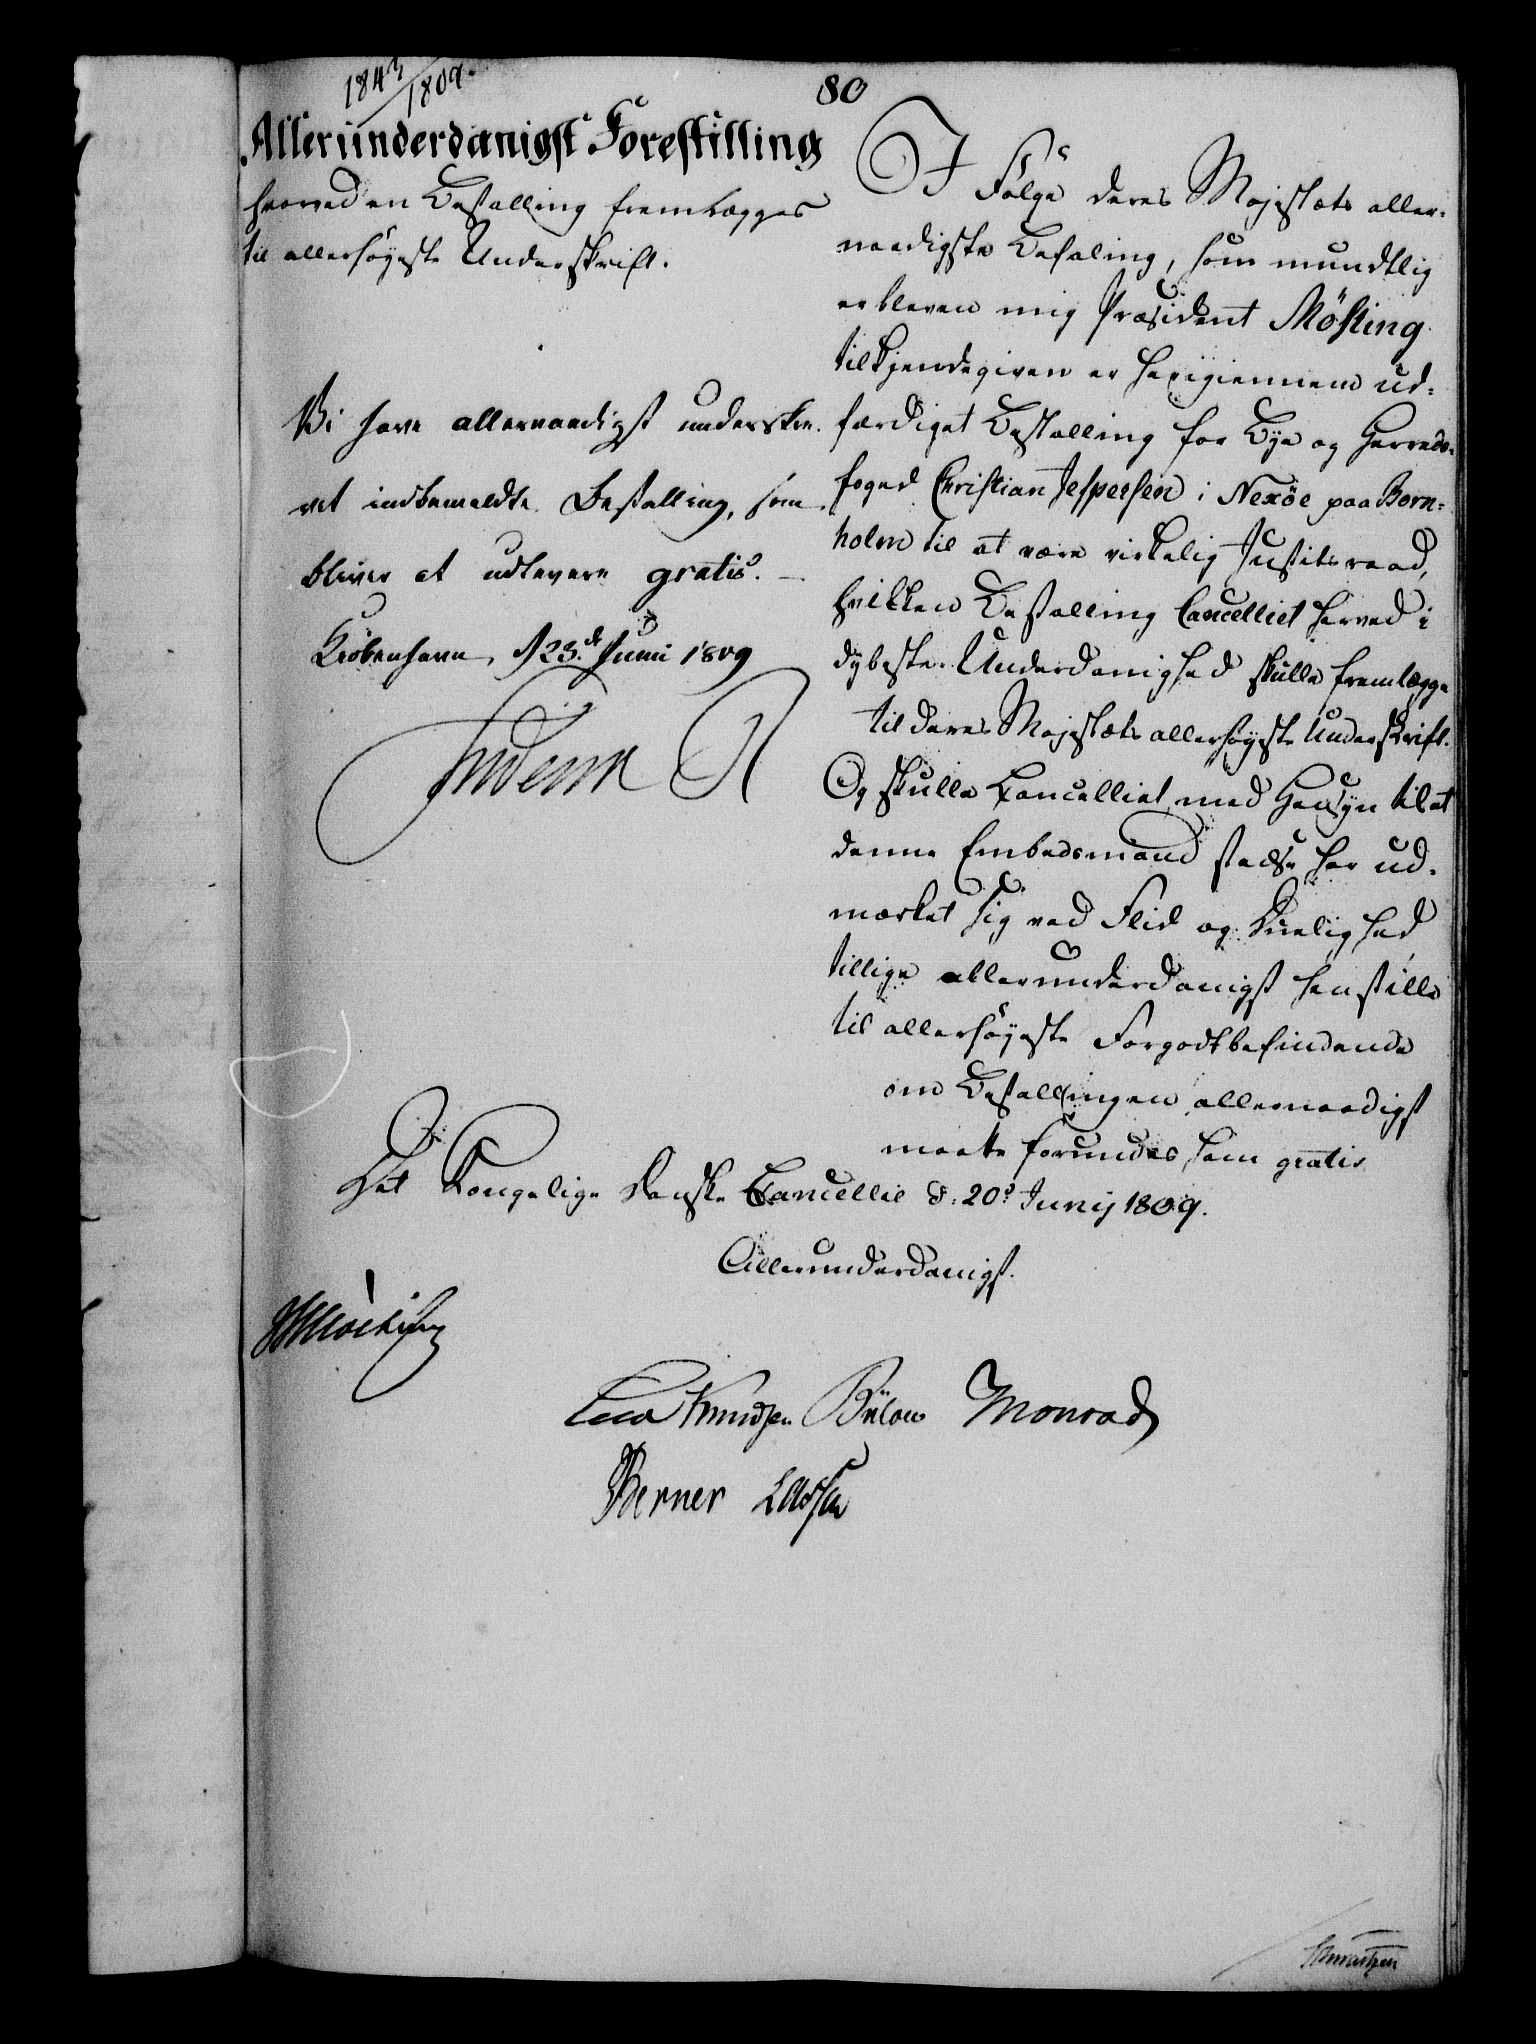 1843/1809.
80
Allerunderdanigst Forestilling
hvorved en Bestalling fremlægges
til allerhøyeste Underskrift.
Vi have allernaadigst underskre-
vet indbemeldte Bestalling, som
bliver at udlevere gratis. –
Kiøbenhavn, d 23.de Juni 1809
Frederik R
I Følge deres Majestæts aller-
naadigste Befaling, som mundtlig
er bleven mig Præsident Møsting
tilkjendegiven er herigiennem ud-
færdiget Bestalling for Bye og Herreds-
foged Christian Jespersen i Nexöe paa Born-
holm til at være virkelig Justitsraad,
hvilken Bestalling Cancelliet herved i
dybeste Underdanighed skulle fremlægge
til deres Majestæts allerhøyeste Underskrift.
Og skulle Cancelliet med Hensyn til at
denne Embedsmand stedse har ud-
mærket sig ved Flid og Duelighed,
tillige allerunderdanigst henstille
til allerhøyeste Forgodtbefindende
om Bestallingen allernaadigst
maatte forundes ham gratis
Det Kongelige Danske Cancellie d: 20d Junij 1809.
Allerunderdanigst.
JSMösting
Knudsen Bülow Monrad
Berner Lassen